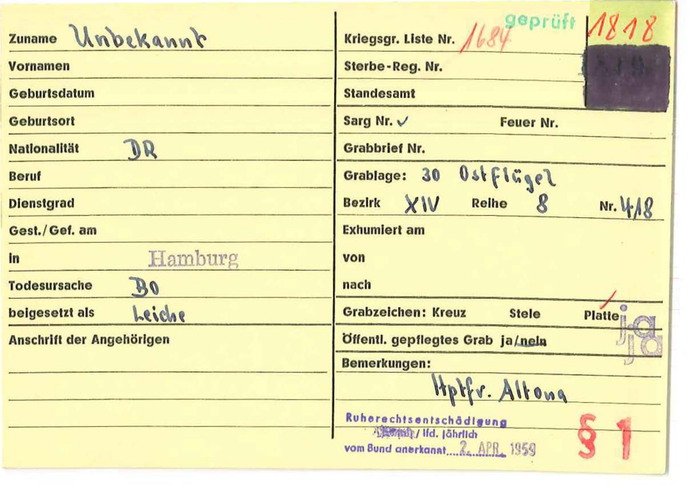 geprüft 1818
Zuname Unbekannt
Vornamen
Geburtsdatum
Geburtsort
Nationalität DR
Beruf
Dienstgrad
Gest./Gef. am
in Hamburg
Todesursache BO
beigesetzt als Leiche
Anschrift der Angehörigen
Kriegsgr. Liste Nr. 1684
Sterbe-Reg. Nr.
Standesamt
Sarg Nr. ✓ Feuer Nr.
Grabbrief Nr.
Grablage: 30 Ostflügel
Bezirk XIV Reihe 8 Nr. 418
Exhumiert am
von
nach
Grabzeichen: Kreuz Stele Platte
ja
Öffentl. gepflegtes Grab ja/nein
ja
Bemerkungen:
Hptfr. Altona
Ruherechtsentschädigung
/ lfd. jährlich
vom Bund anerkannt 2. APR. 1959
§ 1